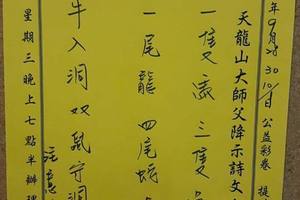 年9月28 30 10/1日公益彩卷
天龍山大師父降示詩文
一隻 三隻
一尾龍 四尾
牛入洞奴鼠守洞
星期三晚上七點半辦理